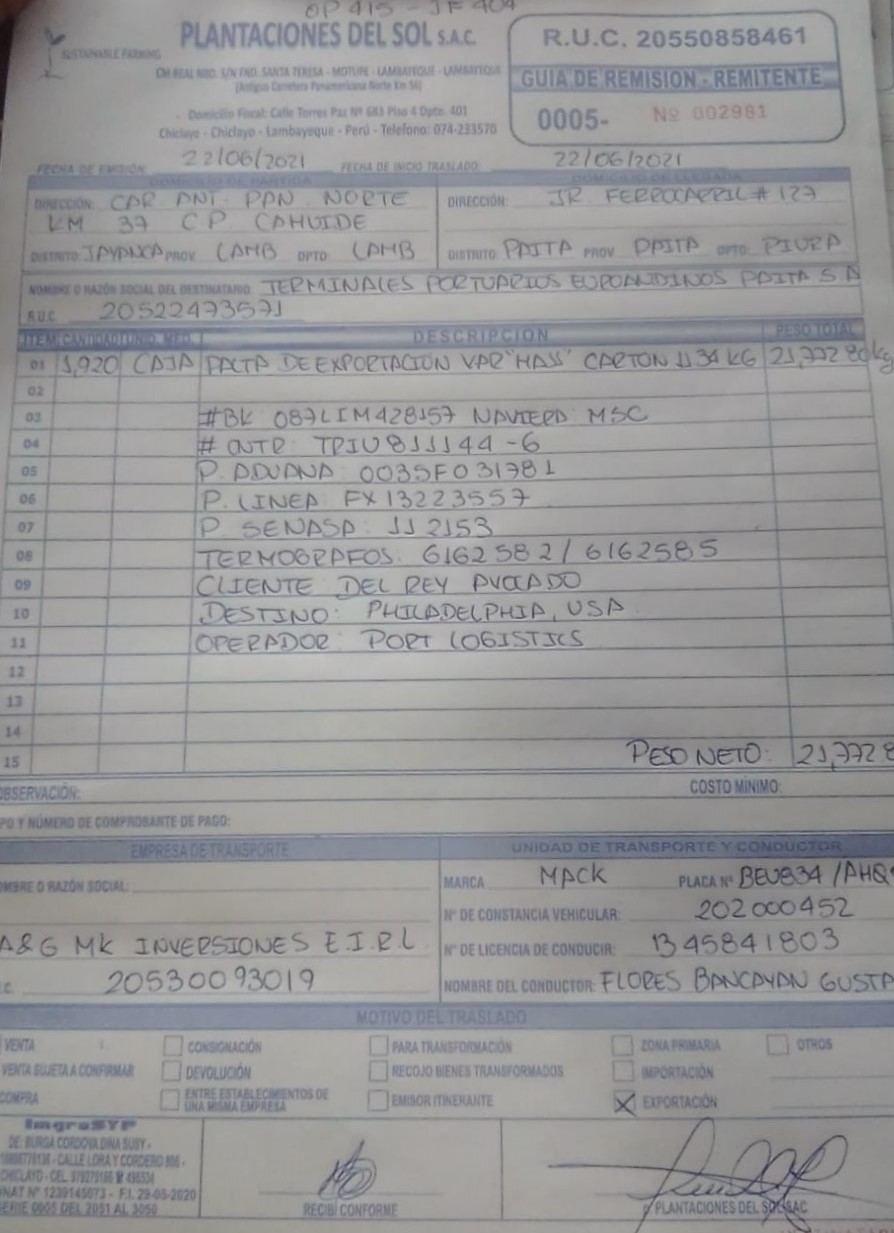 OP 415 - JF 404
SUSTAINABLE FARMING
PLANTACIONES DEL SOL S.A.C.
CM REAL NRO. S/N FND. SANTA TERESA - MOTUPE - LAMBAYEQUE - LAMBAYEQUE
(Antigua Carretera Panamericana Norte Km 56)
Domicilio Fiscal: Calle Torres Paz Nº 683 Piso 4 Dpto. 401
Chiclayo - Chiclayo - Lambayeque - Perú - Telefono: 074-233570
R.U.C. 20550858461
GUIA DE REMISION - REMITENTE
0005- Nº 002981
FECHA DE EMISIÓN: 22/06/2021 FECHA DE INICIO TRASLADO: 22/06/2021
DOMICILIO DE PARTIDA DOMICILIO DE LLEGADA
DIRECCIÓN: CAR ANT. PAN. NORTE DIRECCIÓN: JR FERROCARRIL # 127
KM 37 C P CAHUIDE
DISTRITO: JAYANCA PROV. LAMB DPTO: LAMB DISTRITO: PAITA PROV PAITA DPTO: PIURA
NOMBRE O RAZÓN SOCIAL DEL DESTINATARIO: TERMINALES PORTUARIOS EUROANDINOS PAITA S A
R.U.C. 20522473571
ITEM CANTIDAD UNID. MED. DESCRIPCION PESO TOTAL
01 1,920 CAJA PALTA DE EXPORTACION VAR "HASS" CARTON 11.34 KG 21,772.80 kg
02
03 #BK 087LIM428157 NAVIERA: MSC
04 # CNTR: TRIU811144-6
05 P. ADUANA: 0035F031781
06 P. LINEA FX13223557
07 P. SENASA: 112153
08 TERMOGRAFOS: 6162582 / 6162585
09 CLIENTE DEL REY AVOCADO
10 DESTINO: PHILADELPHIA, USA
11 OPERADOR: PORT LOGISTICS
12
13
14
15 PESO NETO: 21,772.8
OBSERVACIÓN: COSTO MÍNIMO:
PO Y NÚMERO DE COMPROBANTE DE PAGO:
EMPRESA DE TRANSPORTE UNIDAD DE TRANSPORTE Y CONDUCTOR
OMBRE O RAZÓN SOCIAL: MARCA MACK PLACA Nº BEU834 / AHQ
Nº DE CONSTANCIA VEHICULAR: 202000452
A&G MK INVERSIONES E.I.R.L Nº DE LICENCIA DE CONDUCIR: B45841803
C. 20530093019 NOMBRE DEL CONDUCTOR: FLORES BANCAYAN GUSTA
MOTIVO DEL TRASLADO
VENTA CONSIGNACIÓN PARA TRANSFORMACIÓN ZONA PRIMARIA OTROS
VENTA SUJETA A CONFIRMAR DEVOLUCIÓN RECOJO BIENES TRANSFORMADOS IMPORTACIÓN
COMPRA ENTRE ESTABLECIMIENTOS DE UNA MISMA EMPRESA EMISOR ITINERANTE X EXPORTACIÓN
ImgraSYP
DE: BURGA CORDOVA DINA SUSY -
CALLE LORA Y CORDERO
CHICLAYO - CEL.
NAT Nº 1239145073 - F.I. 29-05-2020
SERIE 0005 DEL 2051 AL 3050
RECIBÍ CONFORME
PLANTACIONES DEL SOL SAC